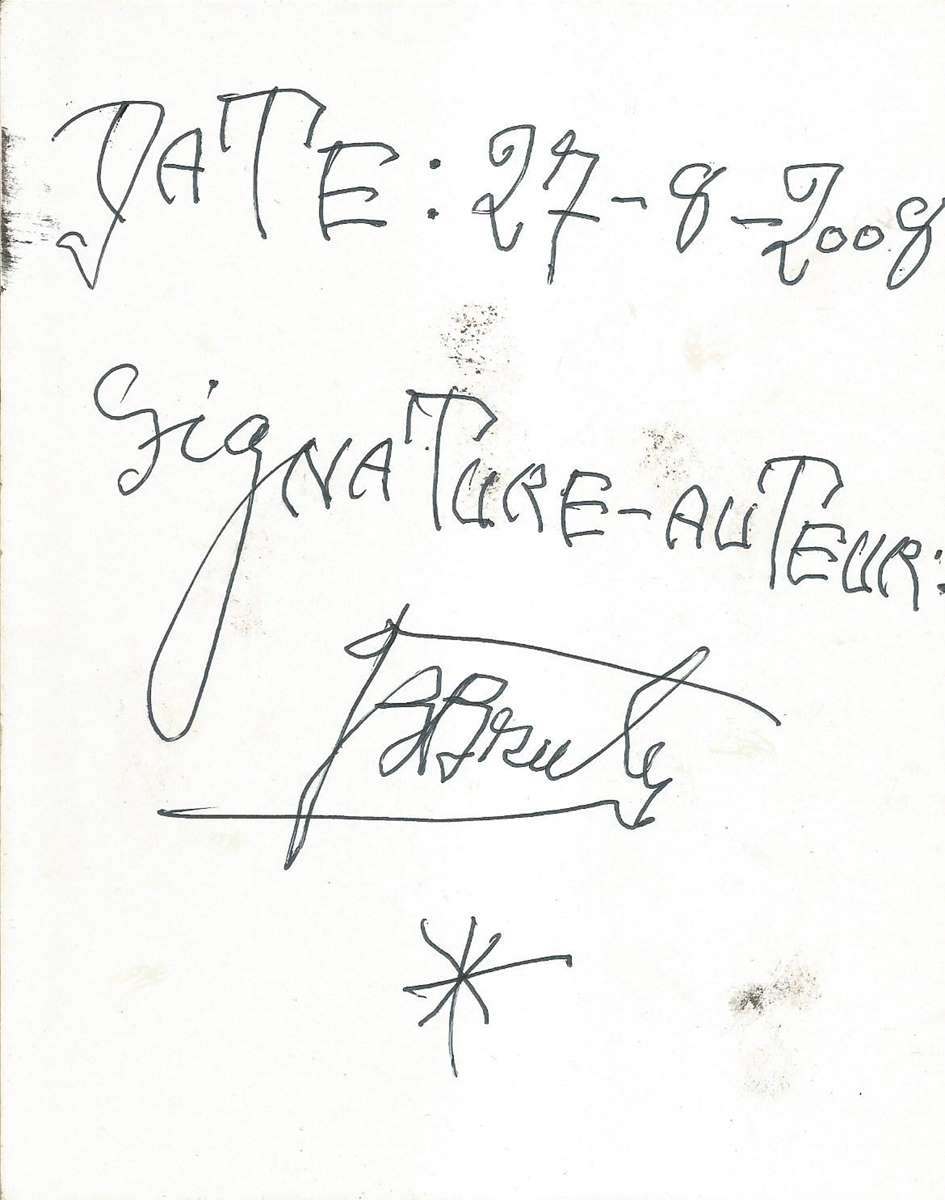 DATE: 27-8-2008
SigNATURE-AUTEUR: